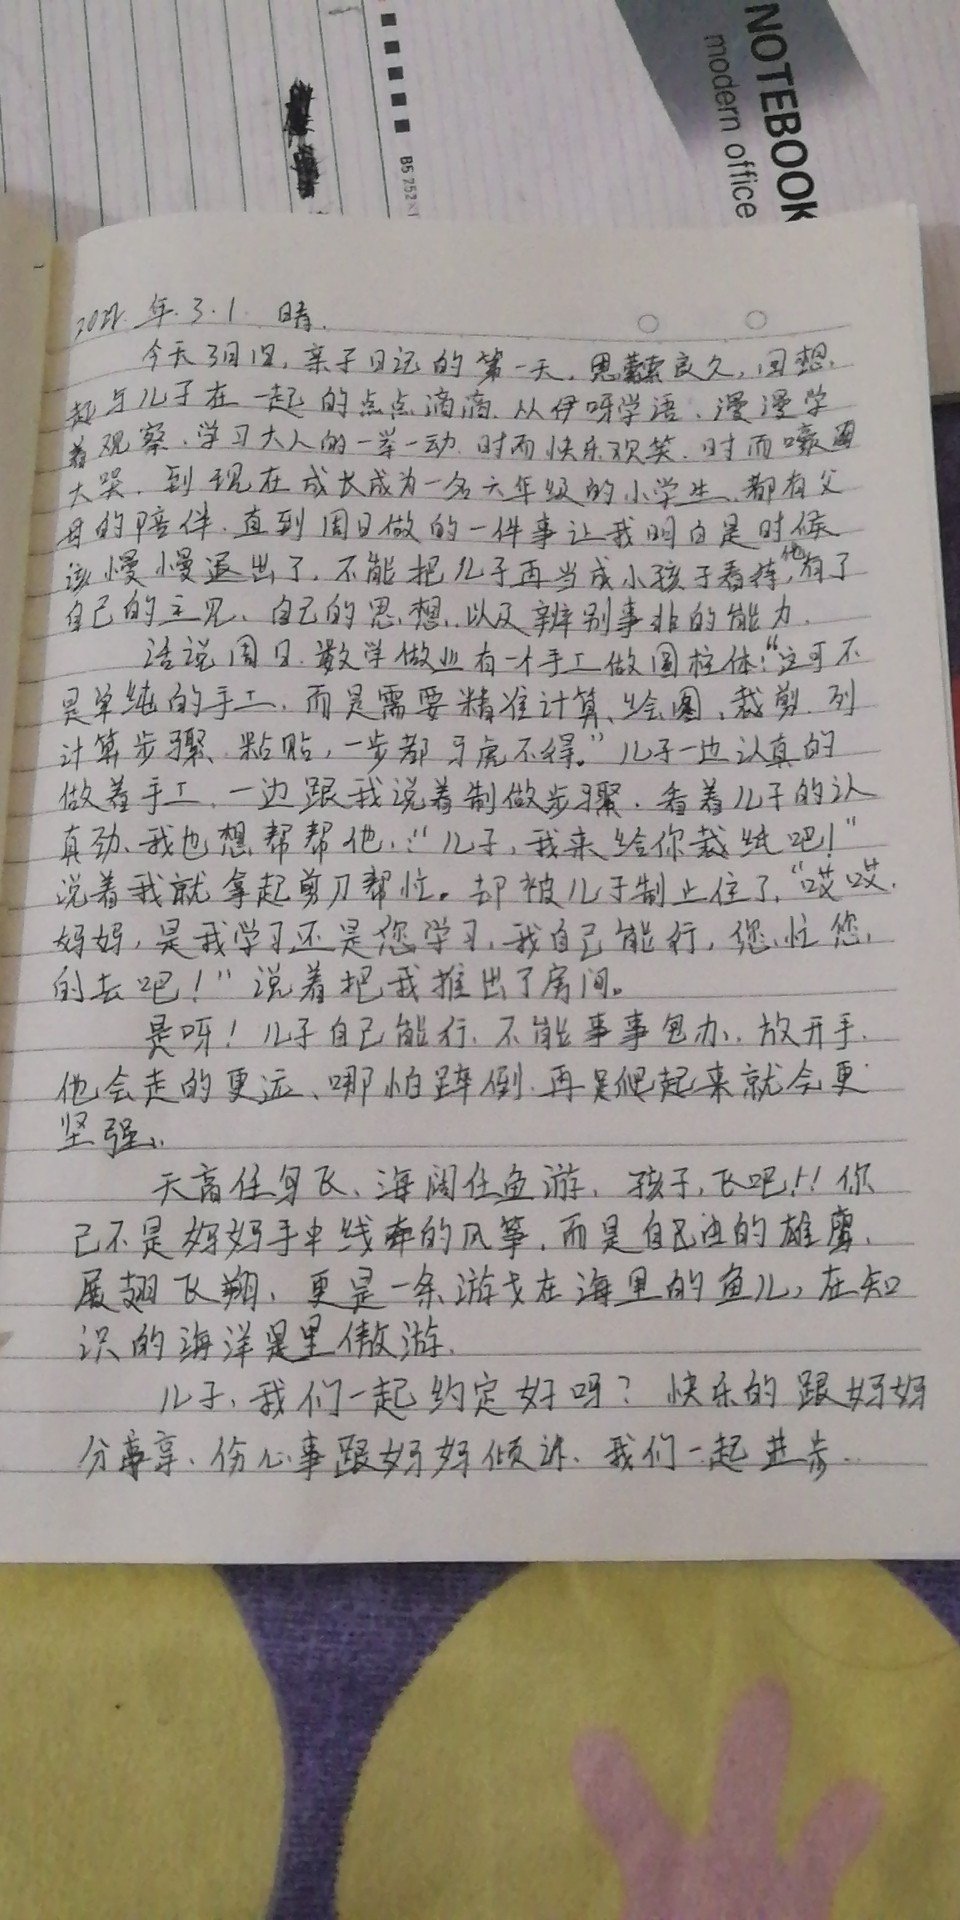 NOTEBOOK
modern office
B5 752×1
年.3.1. 晴.
今天3月1日,亲子日记的第一天,思索良久,回想
起与儿子在一起的点点滴滴.从伊呀学语、漫漫学
着观察.学习大人的一举一动.时而快乐欢笑.时而嚎
大哭.到现在成长成为一名六年级的小学生、都有父
母的陪伴.直到周日做的一件事让我明白是时候
该慢慢退出了.不能把儿子再当成小孩子看待,他有了
自己的主见、自己的思想.以及辨别事非的能力.
话说周日.数学做业有一个手工做圆柱体:“这可不
是单纯的手工、而是需要精准计算、绘图、裁剪.列
计算步骤、粘贴,一步都马虎不得。”儿子一边认真的
做着手工、一边跟我说着制做步骤.看着儿子的认
真劲、我也想帮帮他,:“儿子,我来给你裁纸吧!”
说着我就拿起剪刀帮忙。却被儿子制止住了“哎哎.
妈妈,是我学习还是您学习,我自己能行,您忙您.
的去吧!”说着把我推出了房间。
是呀!儿子自己能行.不能事事包办.放开手.
他会走的更远、哪怕踤倒.再是爬起来就会更
坚强.
天高任鸟飞、海阔任鱼游.孩子,飞吧!!你
已不是妈妈手中线牵的风筝,而是自己的雄鹰.
展翅飞翔、更是一条游戈在海里的鱼儿,在知
识的海洋是里傲游.
儿子、我们一起约定好吗?快乐的跟妈妈
分享、伤心事跟妈妈倾诉.我们一起进步..